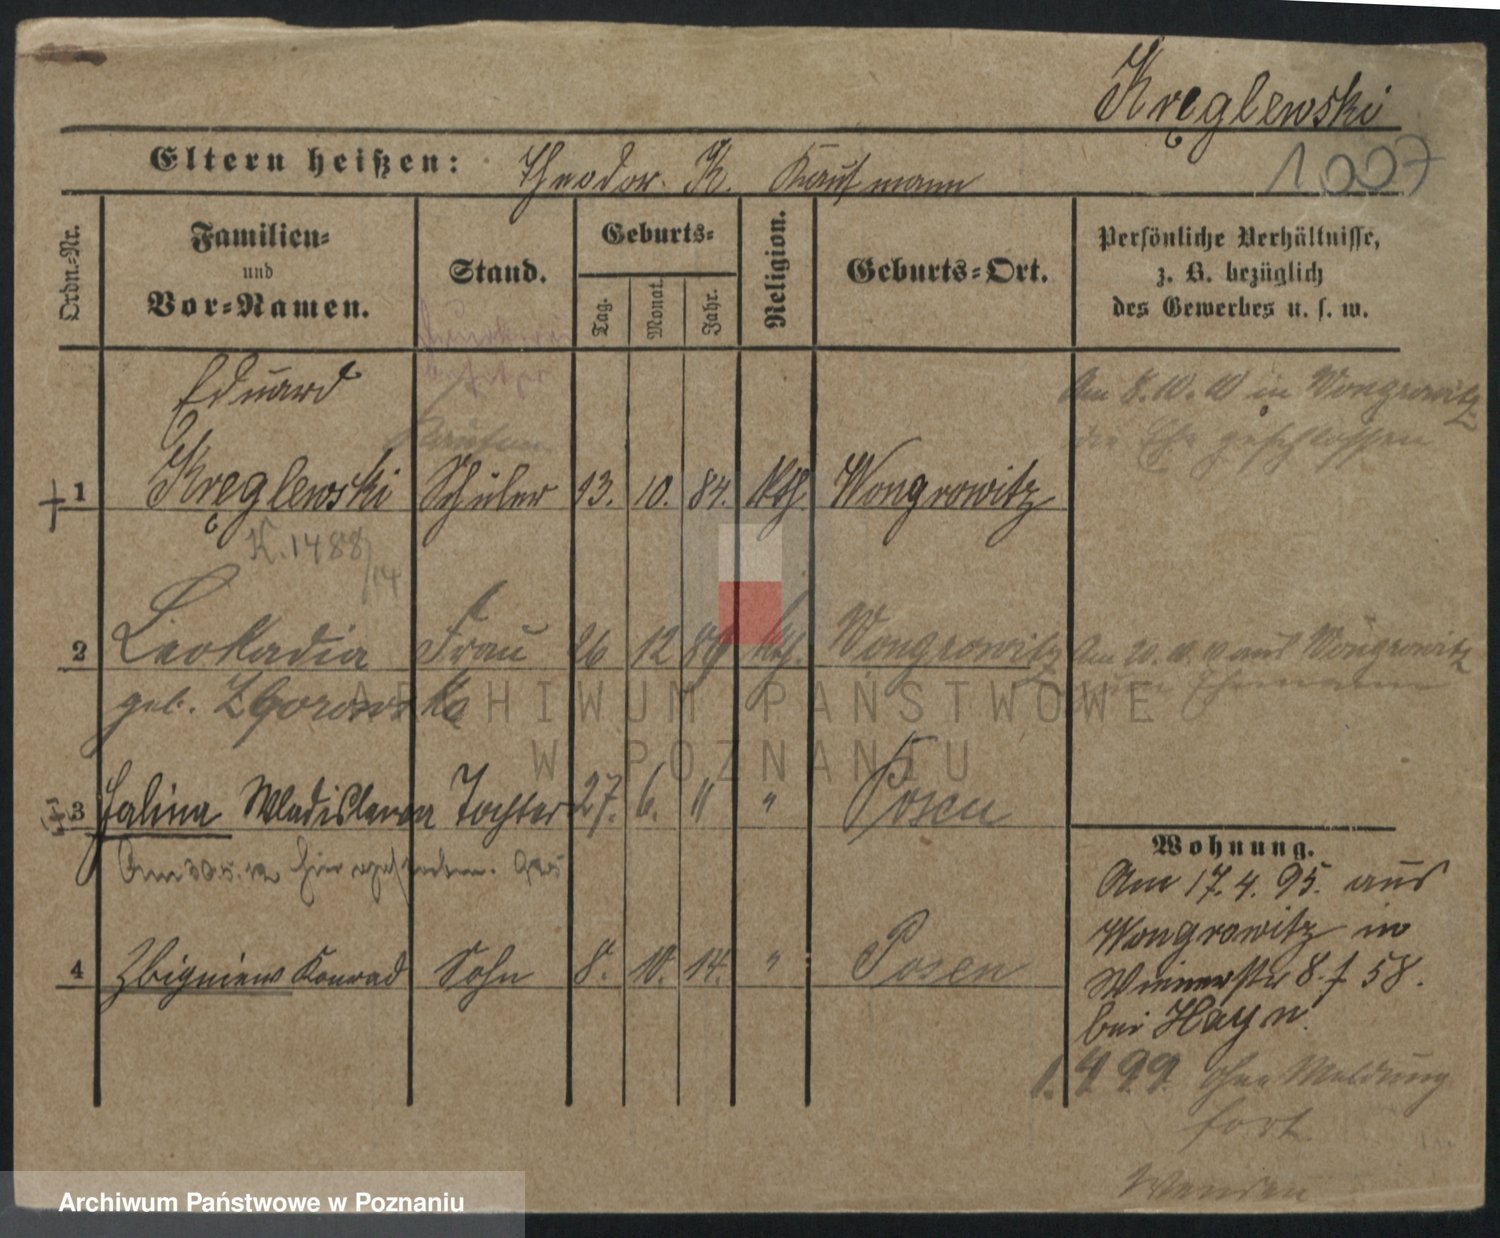 Kręglewski
1007
Eltern heißen: Theodor K. Kaufmann
Ordn.-Nr.
Familien- und Vor-Namen.
Stand.
Geburts-
Tag.
Monat.
Jahr.
Religion.
Geburts-Ort.
Persönliche Verhältnisse,
z. B. bezüglich
des Gewerbes u. s. w.
Eduard
Am 8.10.10 in Wongrowitz
die Ehe geschlossen
Kaufm.
1 Kręglewski Schüler 13. 10. 84. kth. Wongrowitz
K. 1488/14
2 Leokadia Frau 26 12 89 kth. Wongrowitz
geb. Zborowska
Am 20. 10. 10 aus Wongrowitz
zum Ehemann
3 Halina Wladislawa Tochter 27. 6. 11 " Posen
Am 30.5.12 hier verstorben.
4 Zbigniew Konrad Sohn 8. 10. 14. " Posen
Wohnung.
Am 17.4.95. aus
Wongrowitz in
Wienerstr 8. f 58.
bei Hayn.
1.4.99. ohne Meldung
fort
Wenden
ARCHIWUM PAŃSTWOWE
W POZNANIU
Archiwum Państwowe w Poznaniu